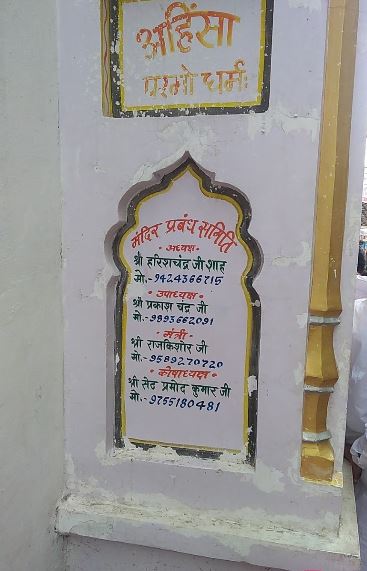 अहिंसा
परमो धर्मः
मंदिर प्रबंध समिति
• अध्यक्ष •
श्री हरिशचंद्र जी शाह
मो.- 9424366715
• उपाध्यक्ष •
श्री प्रकाश चंद्र जी
मो.- 9893662091
• मंत्री •
श्री राजकिशोर जी
मो.- 9589270720
• कोषाध्यक्ष •
श्री सेठ प्रमोद कुमार जी
मो.- 9755180481